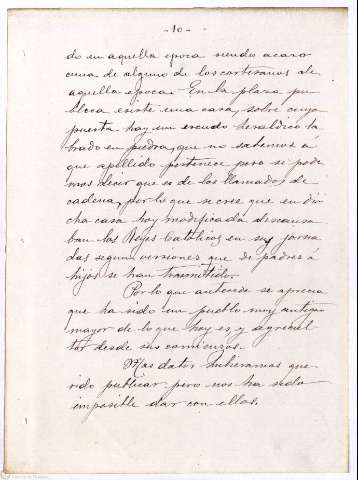 -10-
do en aquella epoca siendo acaso
cuna de alguno de los cortesanos de
aquella epoca - En la plaza pu-
blica existe una casa, sobre cuya
puerta hay un escudo heraldico la
brado en piedra, que no sabemos a
que apellido pertenece pero si pode
mos decir que es de los llamados de
cadena, por lo que se cree que en di
cha casa hoy modificada descansa
ban los Reyes Catolicos en sus jorna
das segun versiones que de padres a
hijos se han transmitido.
Por lo que antecede se aprecia
que ha sido un pueblo muy antiguo
mayor de lo que hoy es y agricul
tor desde sus comienzos.
Mas datos hubieramos que-
rido publicar pero nos ha sido
imposible dar con ellos.